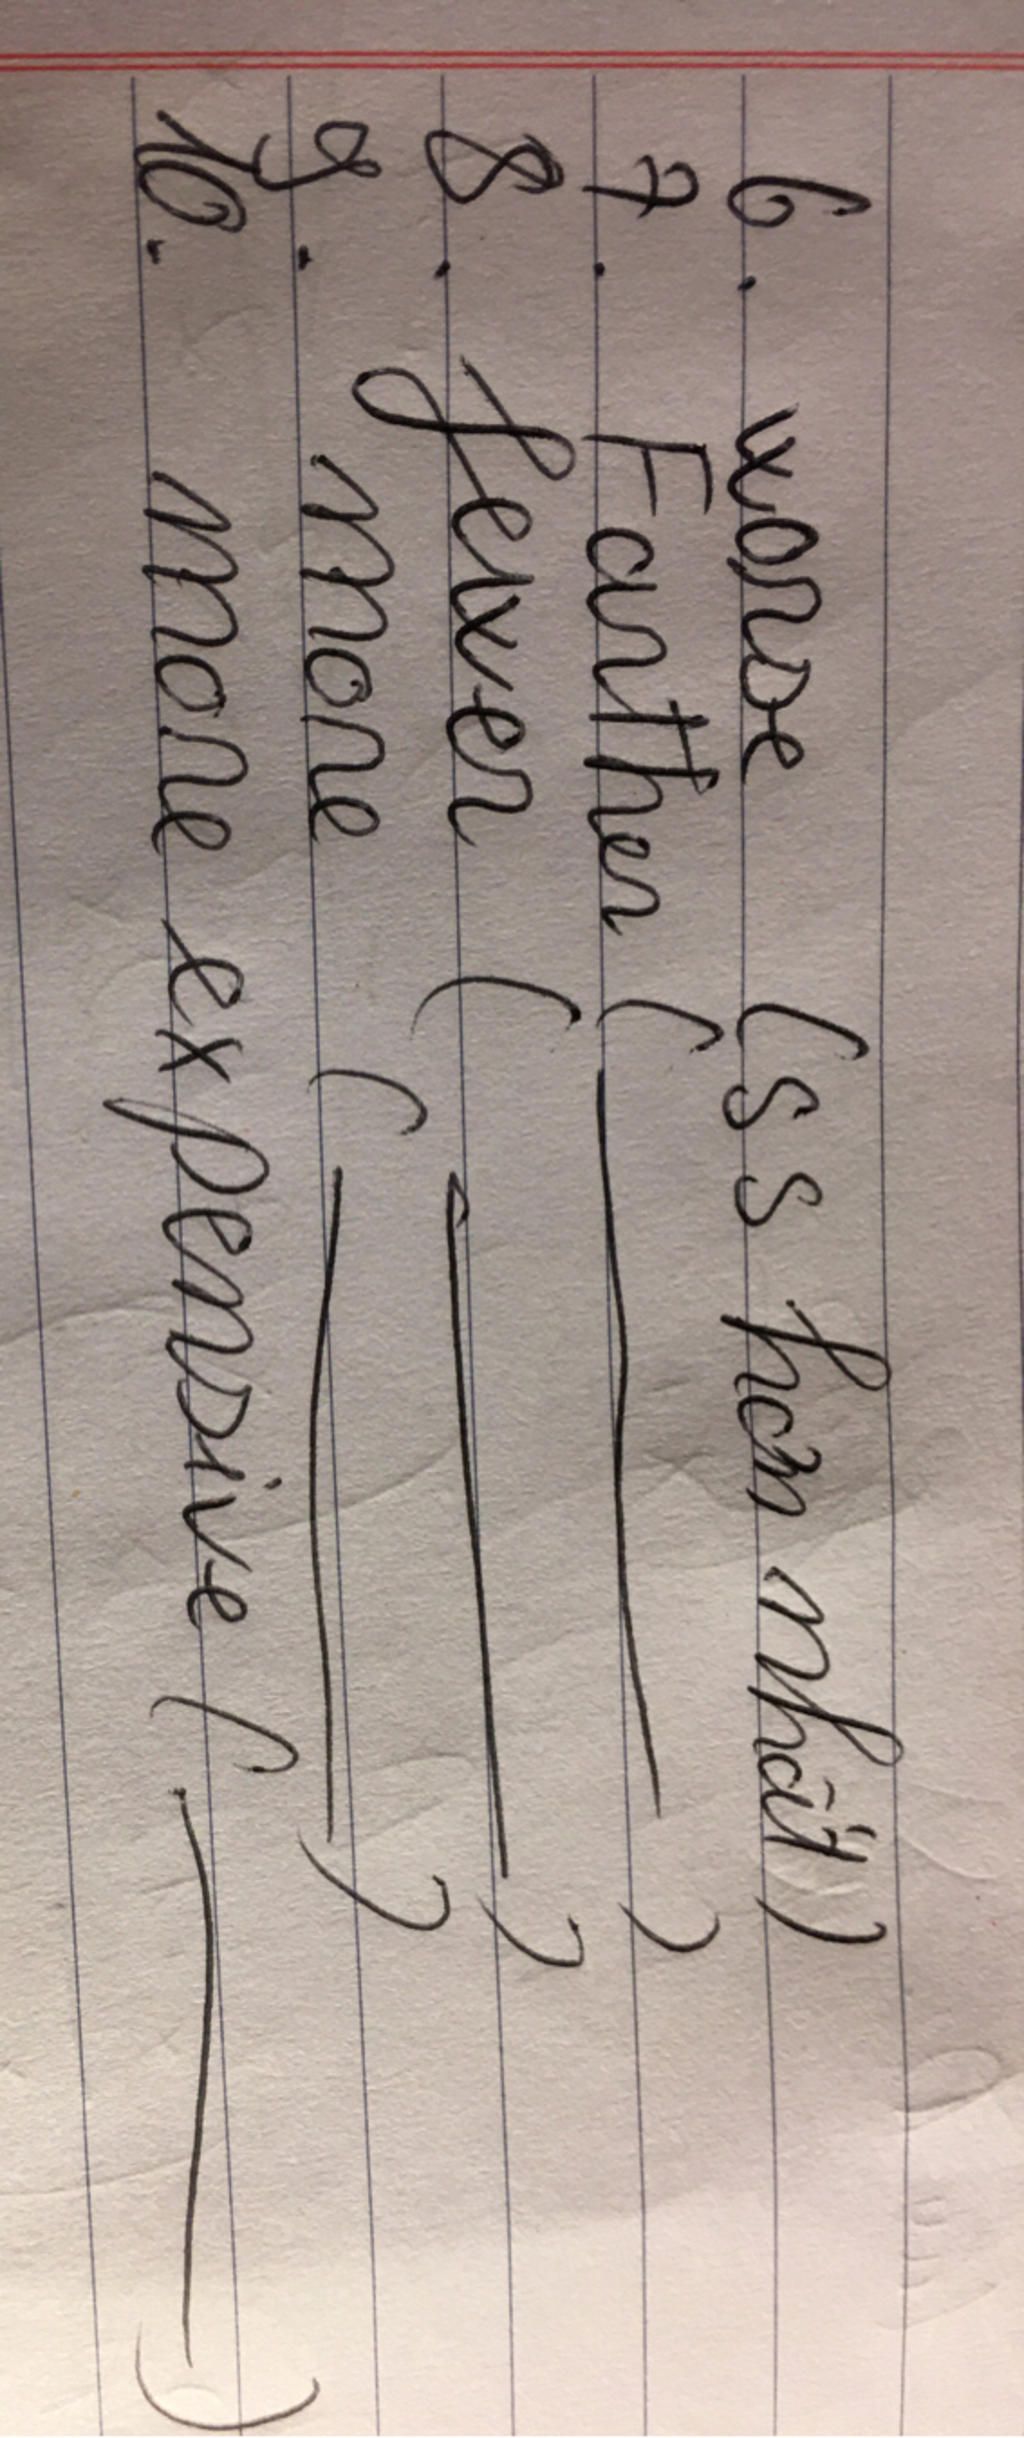 6. worse (ss hơn nhất)
7. Farther ( ——— )
8. fewer ( ——— )
9. more ( ——— )
10. more expensive ( ——— )